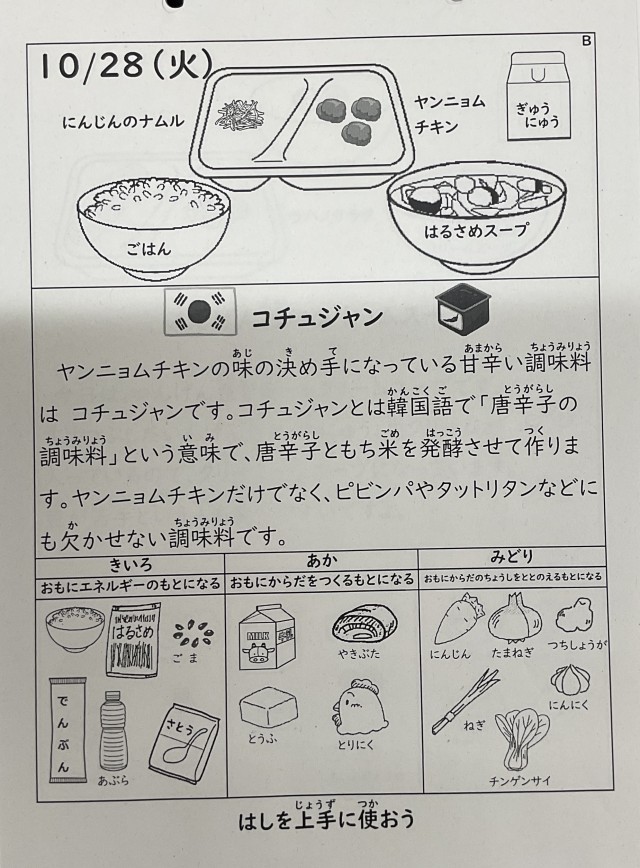 B
10/28(火)
にんじんのナムル
ヤンニョム
チキン
ぎゅう
にゅう
ごはん
はるさめスープ
コチュジャン
ヤンニョムチキンの味の決め手になっている甘辛い調味料
は コチュジャンです。コチュジャンとは韓国語で「唐辛子の
調味料」という意味で、唐辛子ともち米を発酵させて作りま
す。ヤンニョムチキンだけでなく、ピビンパやタットリタンなどに
も欠かせない調味料です。
きいろ
あか
みどり
おもにエネルギーのもとになる
おもにからだをつくるもとになる
おもにからだのちょうしをととのえるもとになる
はるさめ
ごま
でんぷん
あぶら
さとう
MILK
やきぶた
とうふ
とりにく
にんじん
たまねぎ
つちしょうが
ねぎ
にんにく
チンゲンサイ
はしを上手に使おう